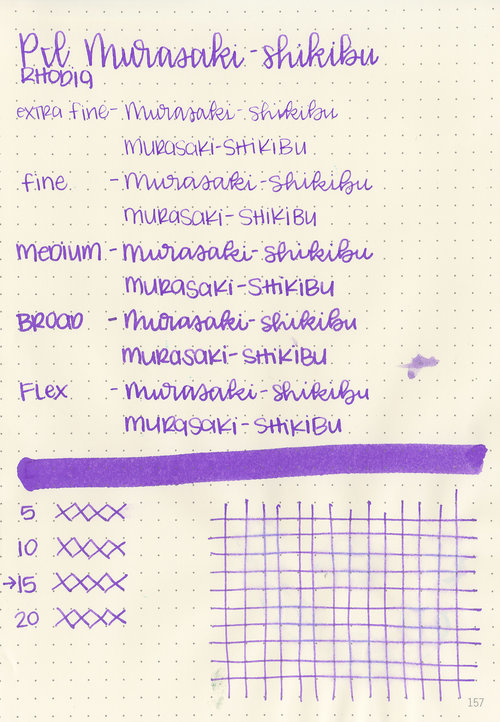 Pil Murasaki-shikibu
RHODIA
extra fine- Murasaki-shikibu
MURASAKI-SHIKIBU
fine - Murasaki-shikibu
MURASAKI-SHIKIBU
MEDIUM - Murasaki-shikibu
MURASAKI-SHIKIBU
BROAD - Murasaki-shikibu
MURASAKI-SHIKIBU
FLEX - Murasaki-shikibu
MURASAKI-SHIKIBU
5 XXXX
10 XXXX
→15 XXXX
20 XXXX
157